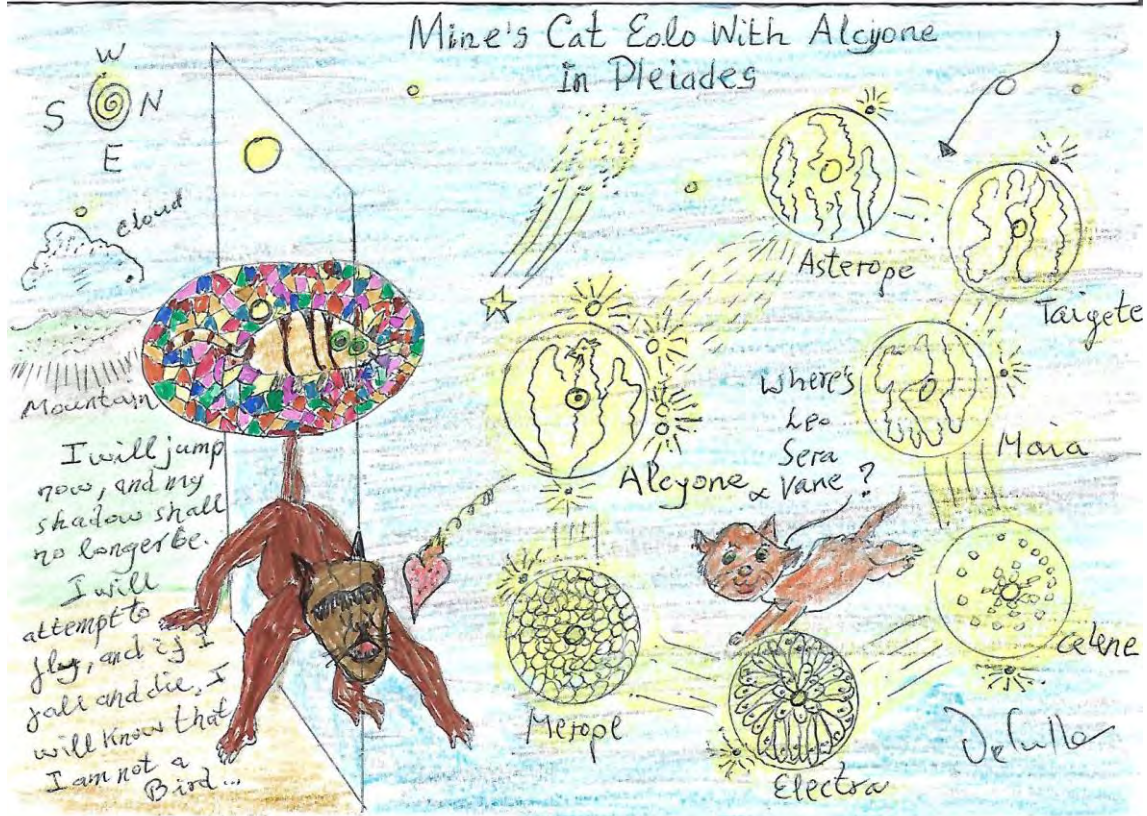 Mine's Cat Eolo With Alcyone
In Pleiades
W
S N
E
cloud
Mountain
I will jump
now, and my
shadow shall
no longer be.
I will
attempt to
fly, and if I
fall and die, I
will know that
I am not a
Bird...
Asterope
Taigete
Maia
Where's
Leo
Sera
& Vane?
Alcyone
Merope
Electra
Celene